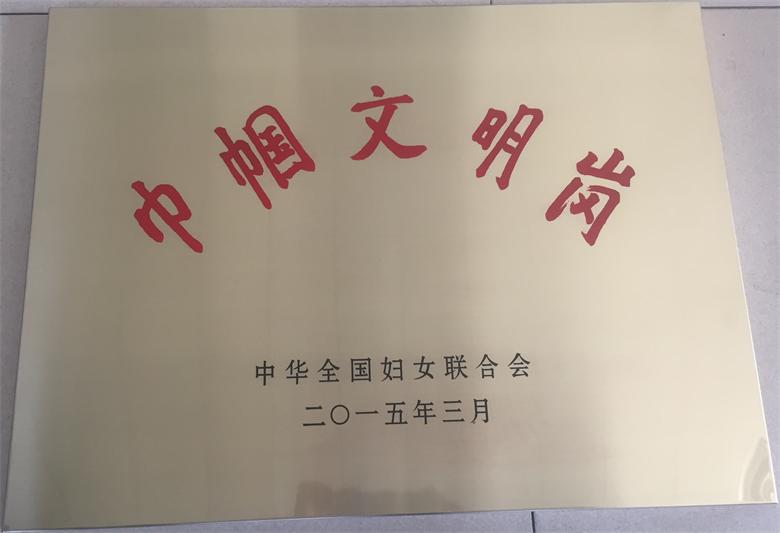 巾帼文明岗
中华全国妇女联合会
二〇一五年三月